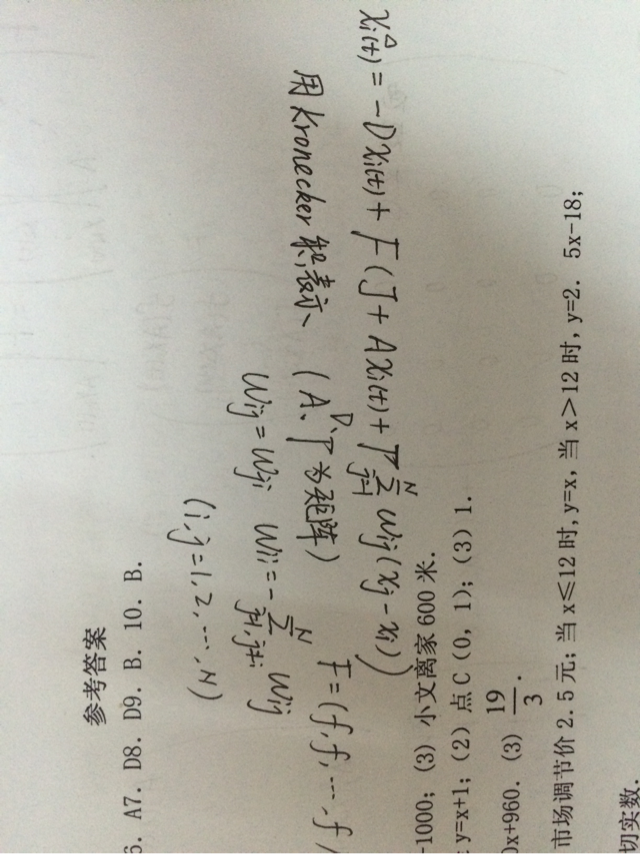 xᵢ^Δ(t) = -Dxᵢ(t) + F(J + Axᵢ(t) + Γ∑_{j=1}^{N} wᵢⱼ(xⱼ - xᵢ))
用Kronecker积表示 (A、D、Γ为矩阵) F=(f,f,…,f
wᵢⱼ = wⱼᵢ wᵢᵢ = -∑_{j=1,j≠i}^{N} wᵢⱼ
(i,j=1,2,…,N)
参考答案
6. A7. D8. D9. B. 10. B.
-1000; (3) 小文离家 600 米.
y=x+1; (2) 点 C (0, 1); (3) 1.
0x+960. (3) 19/3.
市场调节价 2.5 元; 当 x≤12 时, y=x, 当 x>12 时, y=2. 5x-18;
切实数.